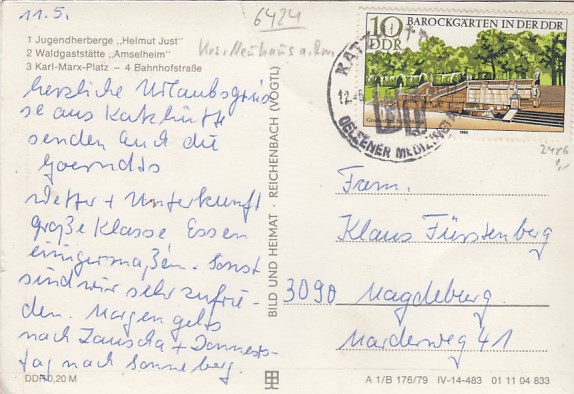 11.5.
6424
Krs. Neuhaus a. Rwg.
1 Jugendherberge „Helmut Just"
2 Waldgaststätte „Amselheim"
3 Karl-Marx-Platz – 4 Bahnhofstraße
herzliche Urlaubsgrüs
se aus Katzhütte
senden Euch die
Wetter + Unterkunft
große Klasse Essen
einigermaßen. Sonst
sind wir sehr zufrie-
den. Morgen gehts
nach Lauscha + Donners-
tag nach Sonneberg.
DDR 0,20 M
BILD UND HEIMAT · REICHENBACH (VOGTL)
10
DDR
BAROCKGÄRTEN IN DER DDR
1980
KATZHÜTTE
12.-5.
2486
Fam.
Klaus Fürstenberg
3090 Magdeburg
Marderweg 41
A 1/B 176/79 IV-14-483 01 11 04 833